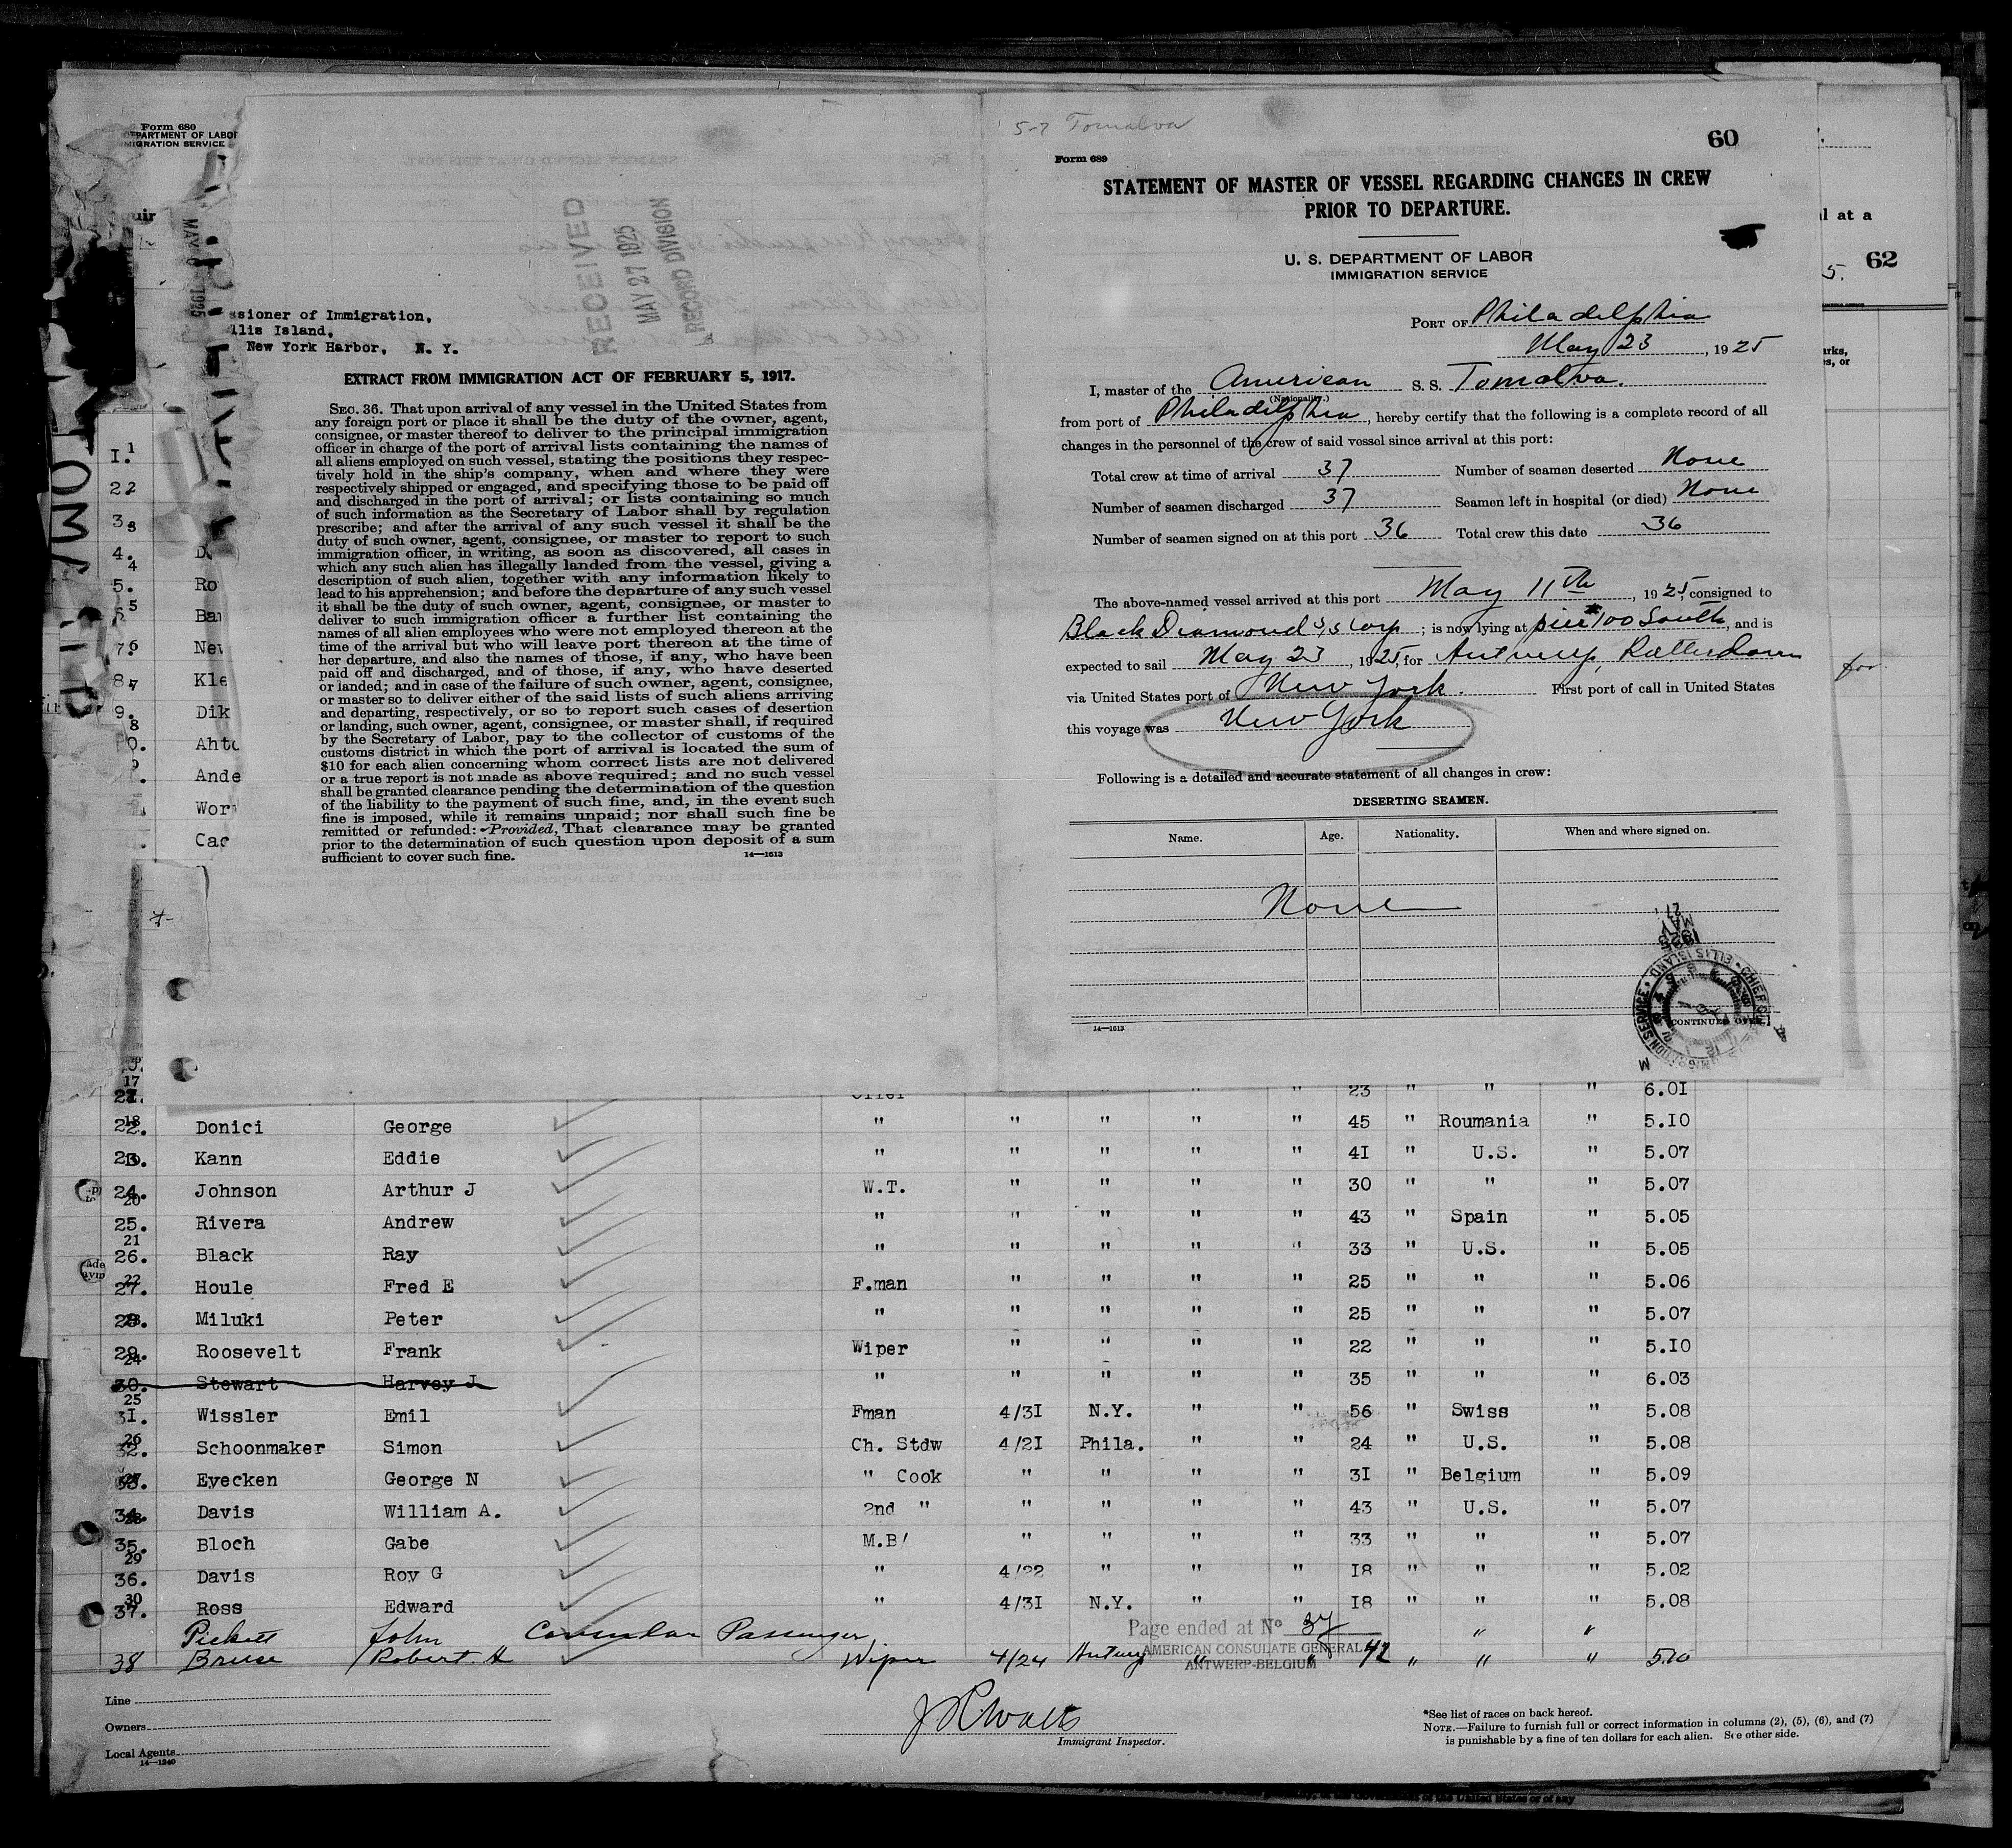 Form 680
DEPARTMENT OF LABOR
IMMIGRATION SERVICE
RECEIVED
MAY 27 1925
RECORD DIVISION
ssioner of Immigration,
llis Island,
New York Harbor, N. Y.
EXTRACT FROM IMMIGRATION ACT OF FEBRUARY 5, 1917.
SEC. 36. That upon arrival of any vessel in the United States from
any foreign port or place it shall be the duty of the owner, agent,
consignee, or master thereof to deliver to the principal immigration
officer in charge of the port of arrival lists containing the names of
all aliens employed on such vessel, stating the positions they respec-
tively hold in the ship's company, when and where they were
respectively shipped or engaged, and specifying those to be paid off
and discharged in the port of arrival; or lists containing so much
of such information as the Secretary of Labor shall by regulation
prescribe; and after the arrival of any such vessel it shall be the
duty of such owner, agent, consignee, or master to report to such
immigration officer, in writing, as soon as discovered, all cases in
which any such alien has illegally landed from the vessel, giving a
description of such alien, together with any information likely to
lead to his apprehension; and before the departure of any such vessel
it shall be the duty of such owner, agent, consignee, or master to
deliver to such immigration officer a further list containing the
names of all alien employees who were not employed thereon at the
time of the arrival but who will leave port thereon at the time of
her departure, and also the names of those, if any, who have been
paid off and discharged, and of those, if any, who have deserted
or landed; and in case of the failure of such owner, agent, consignee,
or master so to deliver either of the said lists of such aliens arriving
and departing, respectively, or so to report such cases of desertion
or landing, such owner, agent, consignee, or master shall, if required
by the Secretary of Labor, pay to the collector of customs of the
customs district in which the port of arrival is located the sum of
$10 for each alien concerning whom correct lists are not delivered
or a true report is not made as above required; and no such vessel
shall be granted clearance pending the determination of the question
of the liability to the payment of such fine, and, in the event such
fine is imposed, while it remains unpaid; nor shall such fine be
remitted or refunded: Provided, That clearance may be granted
prior to the determination of such question upon deposit of a sum
sufficient to cover such fine. 14—1613
5-7 Tomalva
60
Form 689
STATEMENT OF MASTER OF VESSEL REGARDING CHANGES IN CREW
PRIOR TO DEPARTURE.
U. S. DEPARTMENT OF LABOR
IMMIGRATION SERVICE
PORT OF Philadelphia
May 23, 1925
I, master of the American S. S. Tomalva.
(Nationality.)
from port of Philadelphia, hereby certify that the following is a complete record of all
changes in the personnel of the crew of said vessel since arrival at this port:
Total crew at time of arrival 37 Number of seamen deserted None
Number of seamen discharged 37 Seamen left in hospital (or died) None
Number of seamen signed on at this port 36 Total crew this date 36
The above-named vessel arrived at this port May 11th, 1925, consigned to
Black Diamond S,S Corp; is now lying at pier 100 South, and is
expected to sail May 23, 1925, for Antwerp, Rotterdam
via United States port of New York. First port of call in United States
this voyage was New York
Following is a detailed and accurate statement of all changes in crew:
DESERTING SEAMEN.
Name. Age. Nationality. When and where signed on.
None
14—1613
l at a
5. 62
for
Ro
Kle
Dik
Ahto
Ande
Cac
23 " " " 6.01
22. Donici George " " " " " 45 " Roumania " 5.10
23. Kann Eddie " " " " " 41 " U.S. " 5.07
24. Johnson Arthur J W.T. " " " " 30 " " " 5.07
25. Rivera Andrew " " " " " 43 " Spain " 5.05
26. Black Ray " " " " " 33 " U.S. " 5.05
27. Houle Fred E F.man " " " " 25 " " " 5.06
28. Miluki Peter " " " " " 25 " " " 5.07
29. Roosevelt Frank Wiper " " " " 22 " " " 5.10
30. Stewart Harvey J " " " " " 35 " " " 6.03
31. Wissler Emil Fman 4/31 N.Y. " " 56 " Swiss " 5.08
32. Schoonmaker Simon Ch. Stdw 4/21 Phila. " " 24 " U.S. " 5.08
33. Eyecken George N " Cook " " " " 31 " Belgium " 5.09
34. Davis William A. 2nd " " " " " 43 " U.S. " 5.07
35. Bloch Gabe M.B/ " " " " 33 " " " 5.07
36. Davis Roy G " 4/22 " " " 18 " " " 5.02
37. Ross Edward " 4/31 N.Y. " " 18 " " " 5.08
Page ended at No 37
Pickett John Consular Passenger " "
38 Bruce Robert. A Wiper 4/24 Antwerp " " 42 " " " 5.10
AMERICAN CONSULATE GENERAL
ANTWERP-BELGIUM
Line
Owners
Local Agents
14—1240
Immigrant Inspector.
*See list of races on back hereof.
NOTE.—Failure to furnish full or correct information in columns (2), (5), (6), and (7)
is punishable by a fine of ten dollars for each alien. See other side.